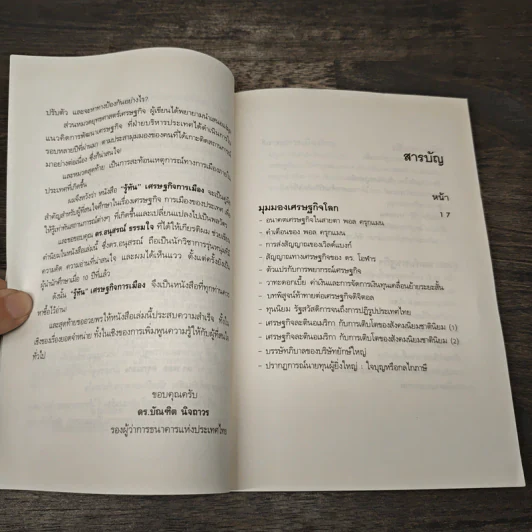 ปรับตัว และจะหาทางป้องกันอย่างไร?
ส่วนหมวดยุทธศาสตร์เศรษฐกิจ ผู้เขียนได้พยายามนำเสนอ
แนวคิดการพัฒนาเศรษฐกิจ ที่ฝ่ายบริหารประเทศได้ดำเนินการใน
รอบหลายปีที่ผ่านมา ตามประสามุมมองของคนที่ได้เกาะติดสถานการณ์
มาอย่างต่อเนื่อง ซึ่งก็น่าสนใจ!
และหมวดสุดท้าย เป็นการสะท้อนเหตุการณ์ทางการเมือง
ประเทศที่เกิดขึ้น
ผมจึงหวังว่า หนังสือ "รู้ทัน" เศรษฐกิจการเมือง จะเป็น
สำคัญสำหรับผู้ที่สนใจศึกษาในเรื่องเศรษฐกิจ การเมืองของประเทศ
ให้รู้เท่าทันสถานการณ์ต่างๆ ที่เกิดขึ้นและเปลี่ยนแปลงไป
และขอขอบคุณ ดร.อนุสรณ์ ธรรมใจ ที่ได้ให้เกียรติผม
คำนิยมในหนังสือเล่มนี้ ซึ่งดร.อนุสรณ์ ถือเป็นนักวิชาการรุ่นหนุ่ม
ความคิด ความอ่านที่น่าสนใจ และผมได้เห็นแวว ตั้งแต่ครั้งยังเป็น
ผู้นำนักศึกษาเมื่อ 10 ปีที่แล้ว
ดังนั้น "รู้ทัน" เศรษฐกิจการเมือง จึงเป็นหนังสือที่ทุกท่าน
หาซื้อไว้อ่าน!
และสุดท้ายขออวยพรให้หนังสือเล่มนี้ประสบความสำเร็จ ทั้งใน
เชิงของเรื่องยอดจำหน่าย ทั้งในเชิงของการเพิ่มพูนความรู้ให้กับผู้ที่สนใจ
ทั่วไป
ขอบคุณครับ
ดร.บัณฑิต นิจถาวร
รองผู้ว่าการธนาคารแห่งประเทศไทย
สารบัญ
หน้า
มุมมองเศรษฐกิจโลก 17
- อนาคตเศรษฐกิจในสายตา พอล ครุกแมน
- คำเตือนของ พอล ครุกแมน
- การส่งสัญญาณของเวิลด์แบงก์
- สัญญาณทางเศรษฐกิจของ ดร. โอฬาร
- ตัวแปรกับการพยากรณ์เศรษฐกิจ
- วาทะดอกเบี้ย ค่าเงินและการจัดการเงินทุนเคลื่อนย้ายระยะสั้น
- บทพิสูจน์ท้าทายต่อเศรษฐกิจดิจิตอล
- ทุนนิยม รัฐสวัสดิการจนถึงการปฏิรูปประเทศไทย
- เศรษฐกิจละตินอเมริกา กับการเติบโตของสังคมนิยมชาตินิยม (1)
- เศรษฐกิจละตินอเมริกา กับการเติบโตของสังคมนิยมชาตินิยม (2)
- บรรษัทภิบาลของบริษัทยักษ์ใหญ่
- ปรากฏการณ์นายทุนผู้ยิ่งใหญ่ : ใจบุญหรือกลไกภาษี